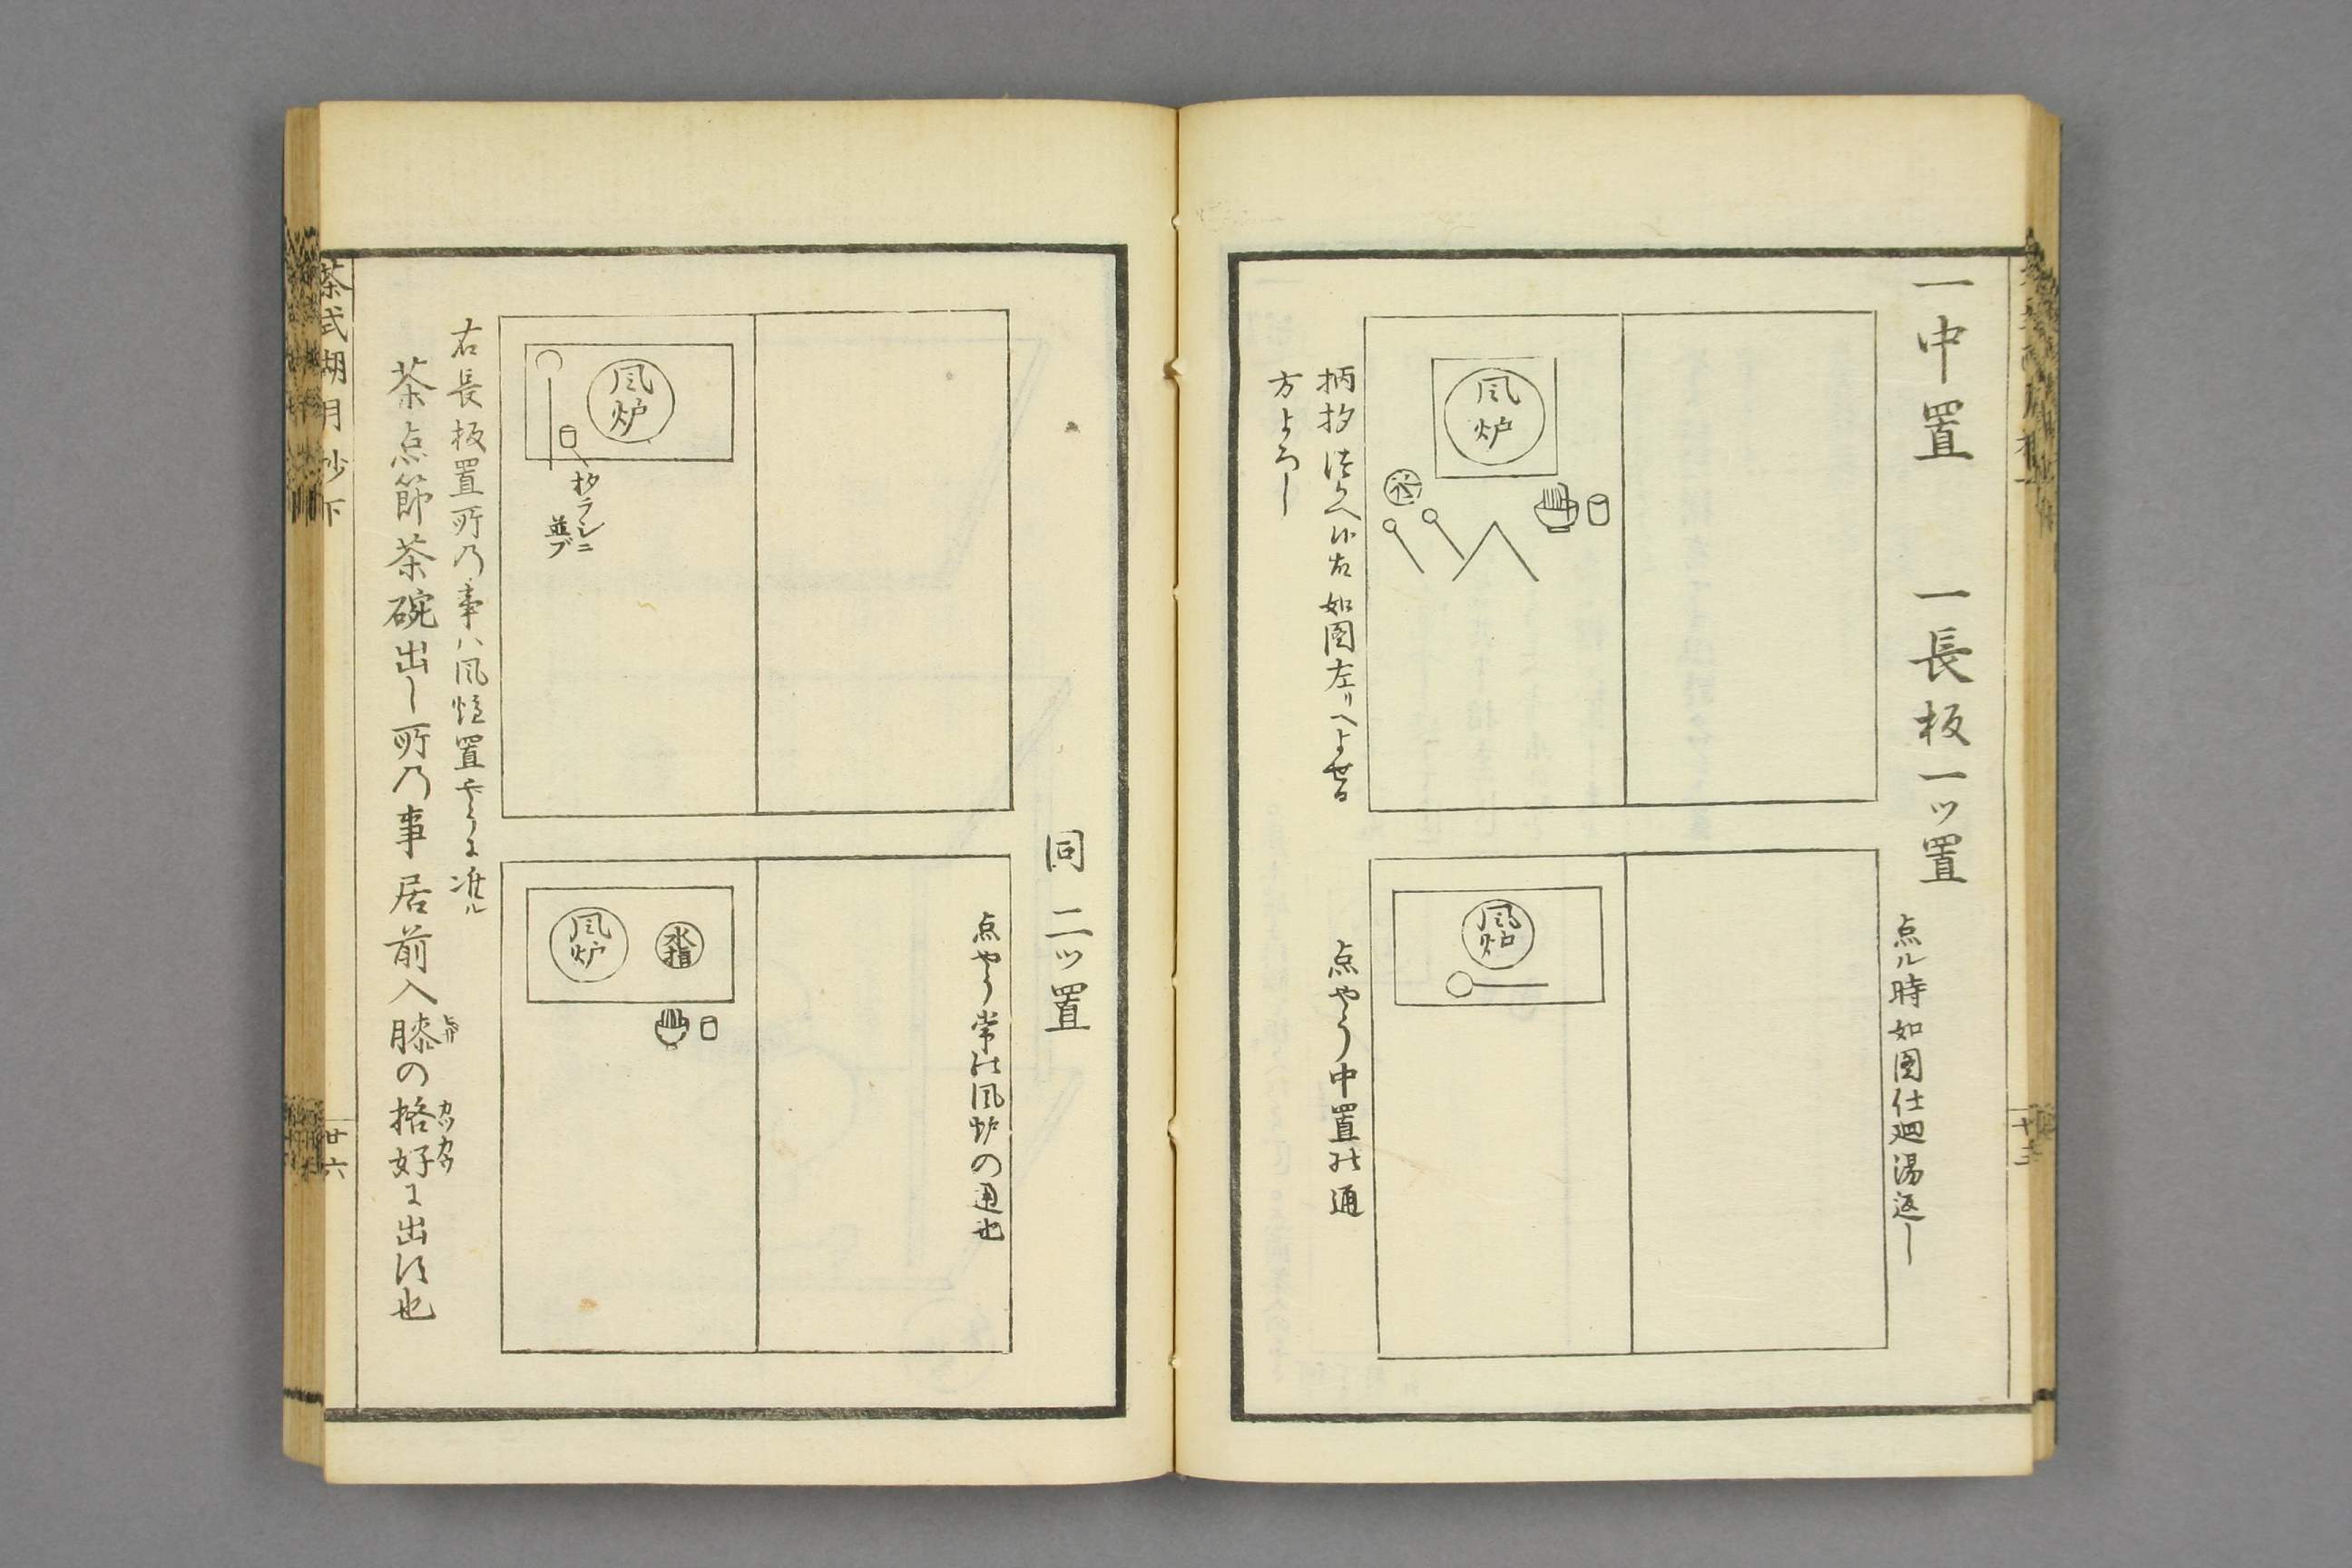 一中置
一長板一ツ置
点ル時如図仕廻湯返し
風炉
水
柄杓
如図左リへよせる
方よろし
風炉
点やう中置の通
同二ツ置
風炉
杓ラシニ
並ブ
点やう常の風炉の通也
風炉
水指
右長板置所乃事ハ風爐置やうに准ル
茶点節茶碗出し所乃事居前入膝の格好に出す也
カツカウ
茶式湖月抄下
廿六